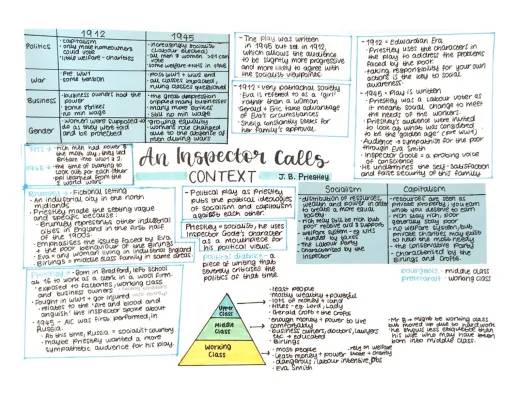 1912
1945
Politics
- capitalism
- only male homeowners could vote
- little welfare - charities
- increasingly socialist (Labour elected)
- all men & women >21 can vote
- some welfare + NHS in time
War
- Pre WW1
- some tension
- most WW1 + WW2 end
- all classes impacted, ruling classes questioned
Business
- business owners had the power
- some strikes
- no min wage
- the great depression crippled many businesses
- many more strikes
- still no min wage
Gender
- women were supposed to do as they were told and be protected
- growing equality
- womens role changed due to working as men during wars
- The play was written
in 1945 but set in 1912,
which allows the audience
to be slightly more progressive
and more likely to agree with
the socialist viewpoints
- 1912 = very patriarchal society
Eva is referred to as a 'girl'
rather than a woman
- Gerald & Eric take advantage
of Eva's circumstances
- Sheila constantly looks for
her family's approval.
- 1912 = Edwardian Era
- Priestley uses the characters in
the play to address the problems
faced by the poor
- taking responsibility for your own
actions is the key to social
awareness
- 1945 = Play is written
- Priestley was a Labour voter as
it means social change to meet
the needs of the workers.
- Priestley's audience were invited
to look at what was considered
to be the 'golden age' (pre WW1)
- Audience → sympathise for the poor
through Eva Smith
- Inspector Goole = a probing voice
of conscience
- He undermines the self-satisfaction
and false security of this family
An Inspector Calls
CONTEXT
J. B. Priestley
- Fictional setting
- An industrial city in the north
midlands
- Priestley made the setting vague
and generic because:
- Brumley represents other industrial
cities in England in the first half
of the 1900s
- Emphasises the issues faced by Eva
& the poor behaviour of the Birlings
- Eva = any woman living in industrial England
- Birlings = middle class family in same areas
- Political play as Priestley
puts the political ideologies
of socialism and capitalism
against each other.
- Priestley = socialist, he uses
Inspector Goole's character
as a mouthpiece for
his political views.
piece of writing that
severely criticises the
politics of that time.
Socialism
- distribution of resources,
wealth and power in order
to create a more equal
society
- rich may still be rich but
poor receive aid & support
- welfare system - eg NHS
funded by taxes
- The Labour Party
- Characterised by the
inspector
Capitalism
- resources are seen as
private property, you earn
what you deserve to earn
- rich stay rich, poor
generally stay poor
- no welfare system, but
private charities may exist
to help the most needy
- the Conservative Party
- characterised by the
Birlings and Crofts
bourgeoisie - middle class
proletariat - working class
- Born in Bradford, left school
at 16 to work as a clerk in a wool firm.
- exposed to factories, working class
and business owners
- Fought in WW1 + got injured
- relates to the 'fire and blood and
anguish' the inspector spoke about
- 1945 = AIC was first performed, in
Russia.
- At this time, Russia = socialist country
- maybe Priestley wanted a more
sympathetic audience for his play.
Upper
Class
Middle
Class
Working
Class
- least people
- mostly wealthy + powerful
- lots of money & land
- titles - eg. Lord, Lady
- Gerald Croft & the Crofts
- enough money + power to live
comfortably
- business owners, doctors, lawyers
etc → educated
- Birlings
- most people
- least money + power
- dangerous, labour intensive jobs
- Eva Smith
- rely on welfare
state & charity
- Mr B = might be working class
but moved up due to hard work
He thinks less than
his wife who may have been
born into middle class.